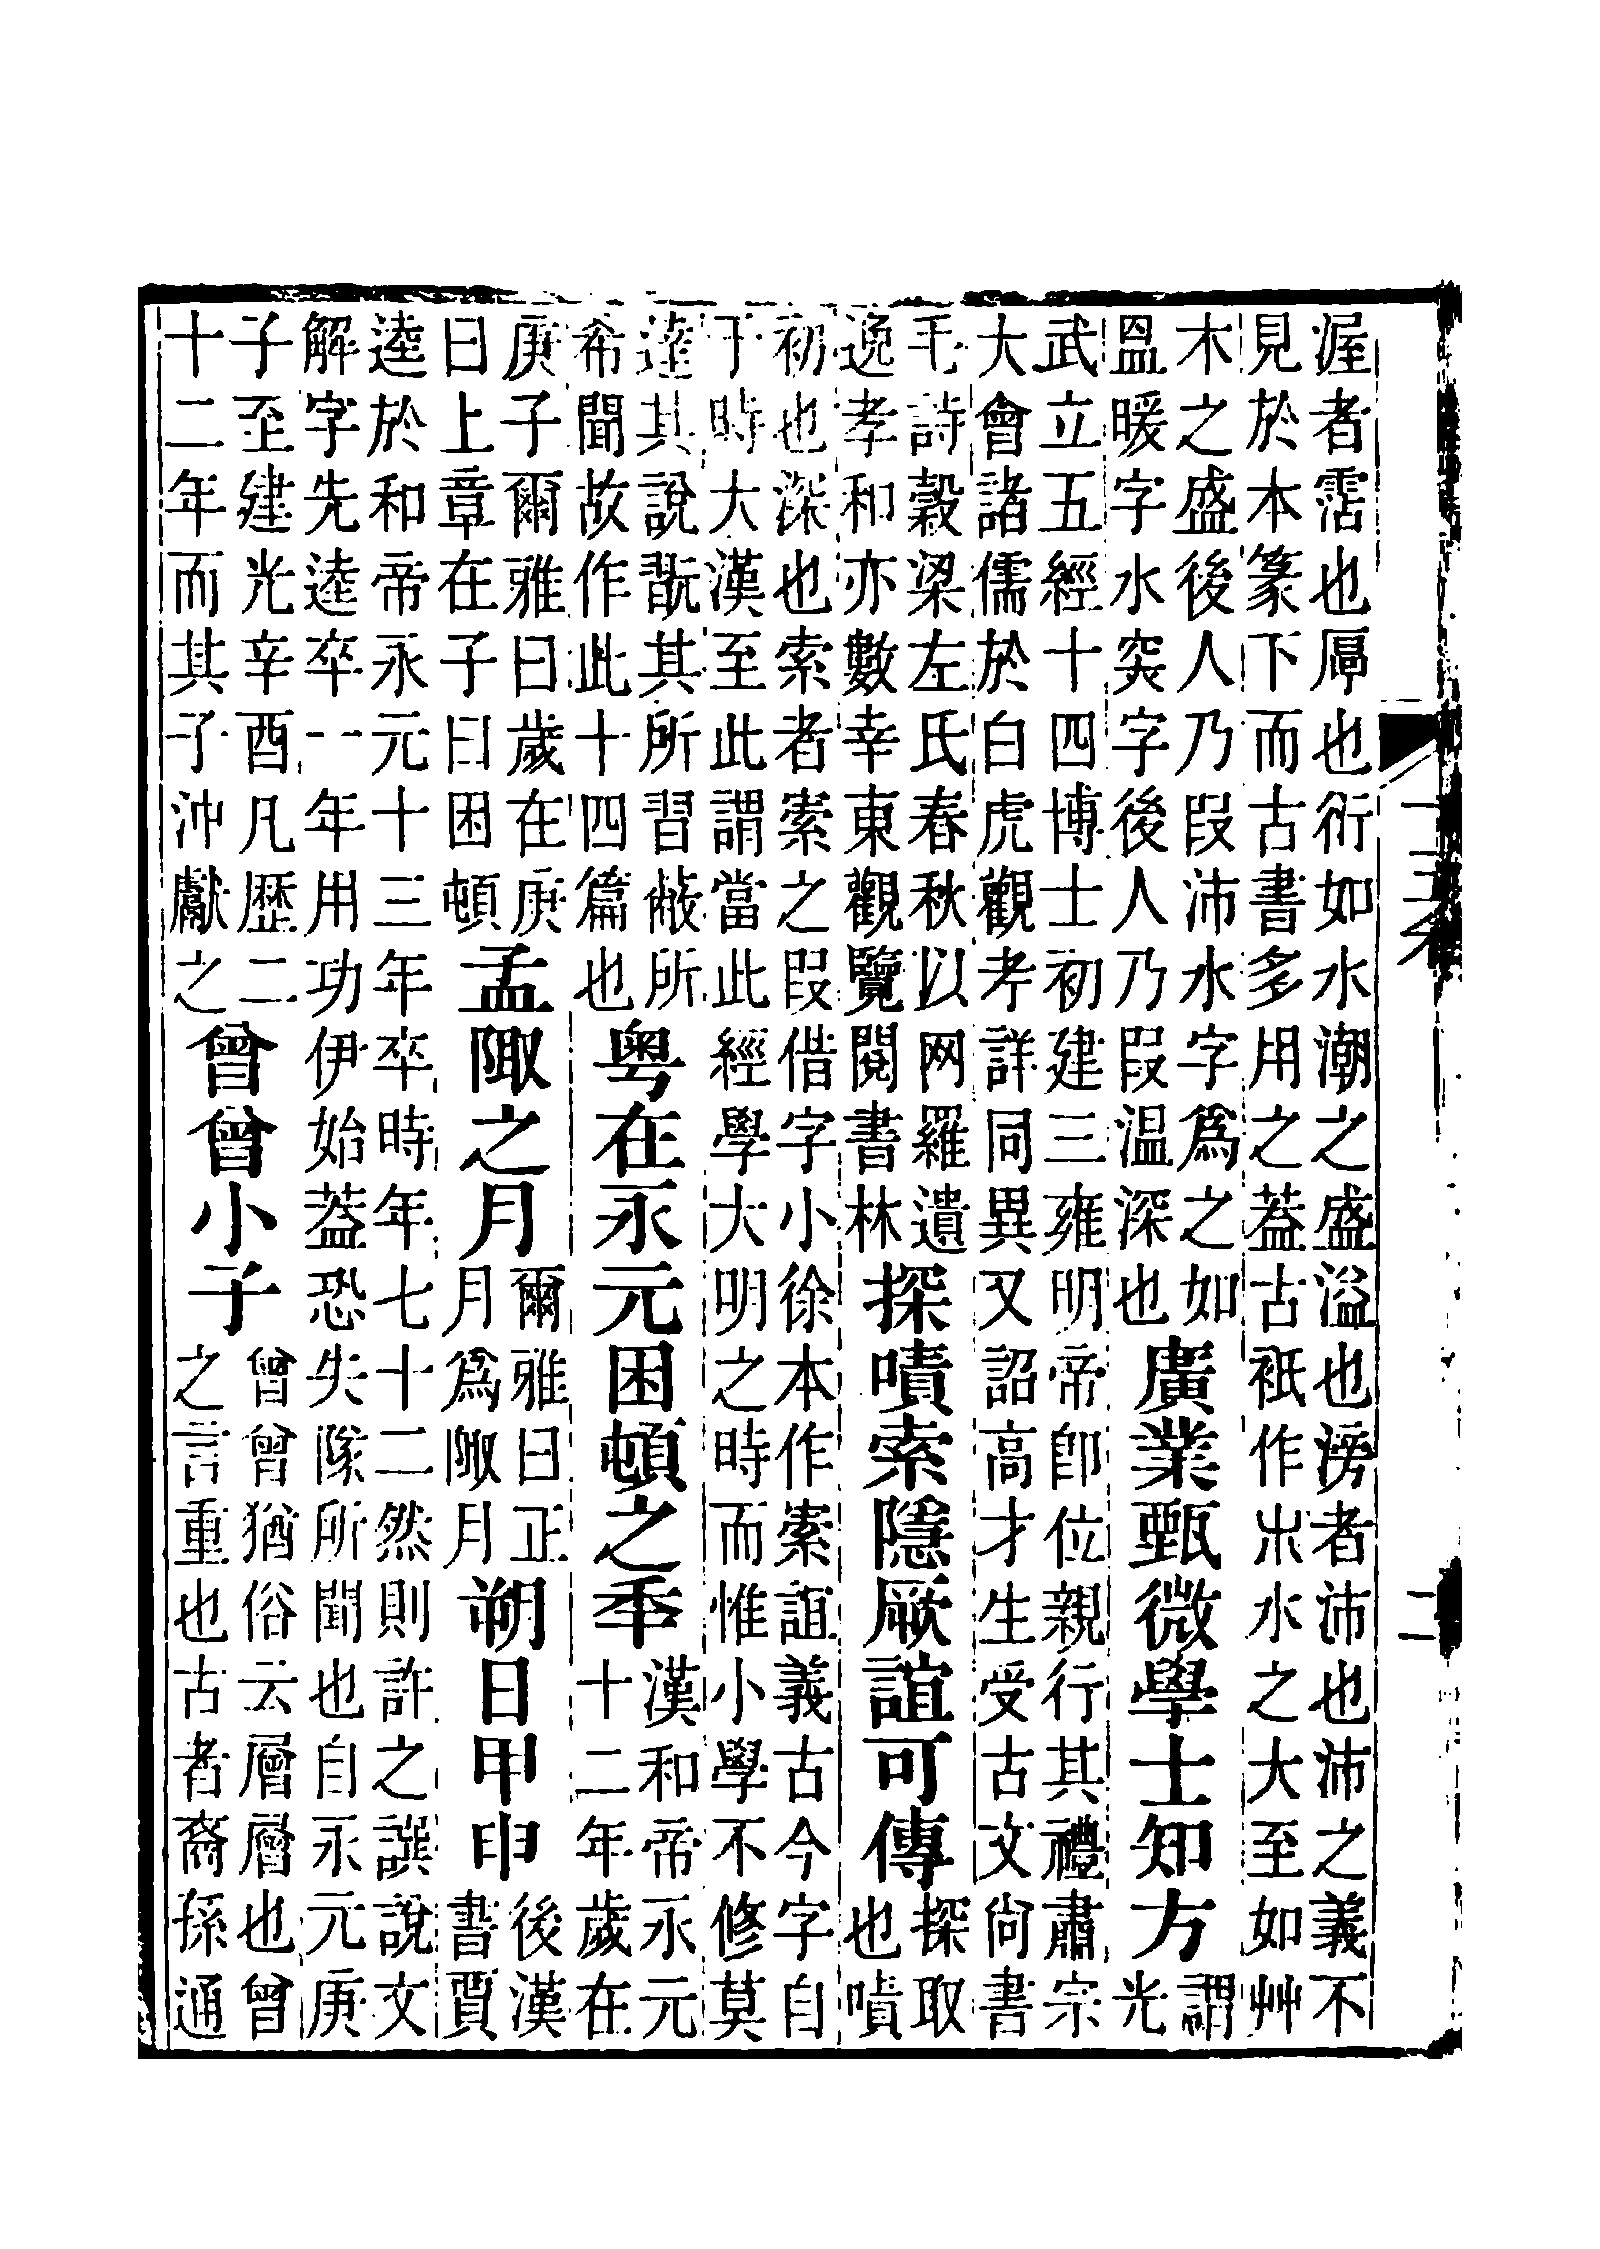 渥者霑也厚也衍如水潮之盛溢也滂者沛也沛之義不
見於本篆下而古書多用之葢古衹作𣎵水之大至如艸
木之盛後人乃叚沛水字爲之如
𥁕暖字水突字後人乃叚温深也
廣業甄微學士知方
謂
光
武立五經十四博士初建三雍明帝卽位親行其禮肅宗
大會諸儒於白虎觀考詳同異又詔高才生受古文尚書
毛詩穀梁左氏春秋以网羅遺
逸孝和亦數幸東觀覽閱書林
探嘖索隱厥誼可傳
探取
也嘖
初也深也索者索之叚借字小徐本作索誼義古今字自
于時大漢至此謂當此經學大明之時而惟小學不修莫
達其說翫其所習蔽所
希聞故作此十四篇也
粤在永元困頓之秊
漢和帝永元
十二年歲在
庚子爾雅曰歲在庚
曰上章在子曰困頓
孟陬之月
爾雅曰正
月爲陬月
朔日甲申
後漢
書賈
逵於和帝永元十三年卒時年七十二然則許之譔說文
解字先逵卒一年用功伊始葢恐失隊所聞也自永元庚
子至建光辛酉凡歷二
十二年而其子沖獻之
曾曾小子
曾曾猶俗云層層也曾
之言重也古者裔孫通
二